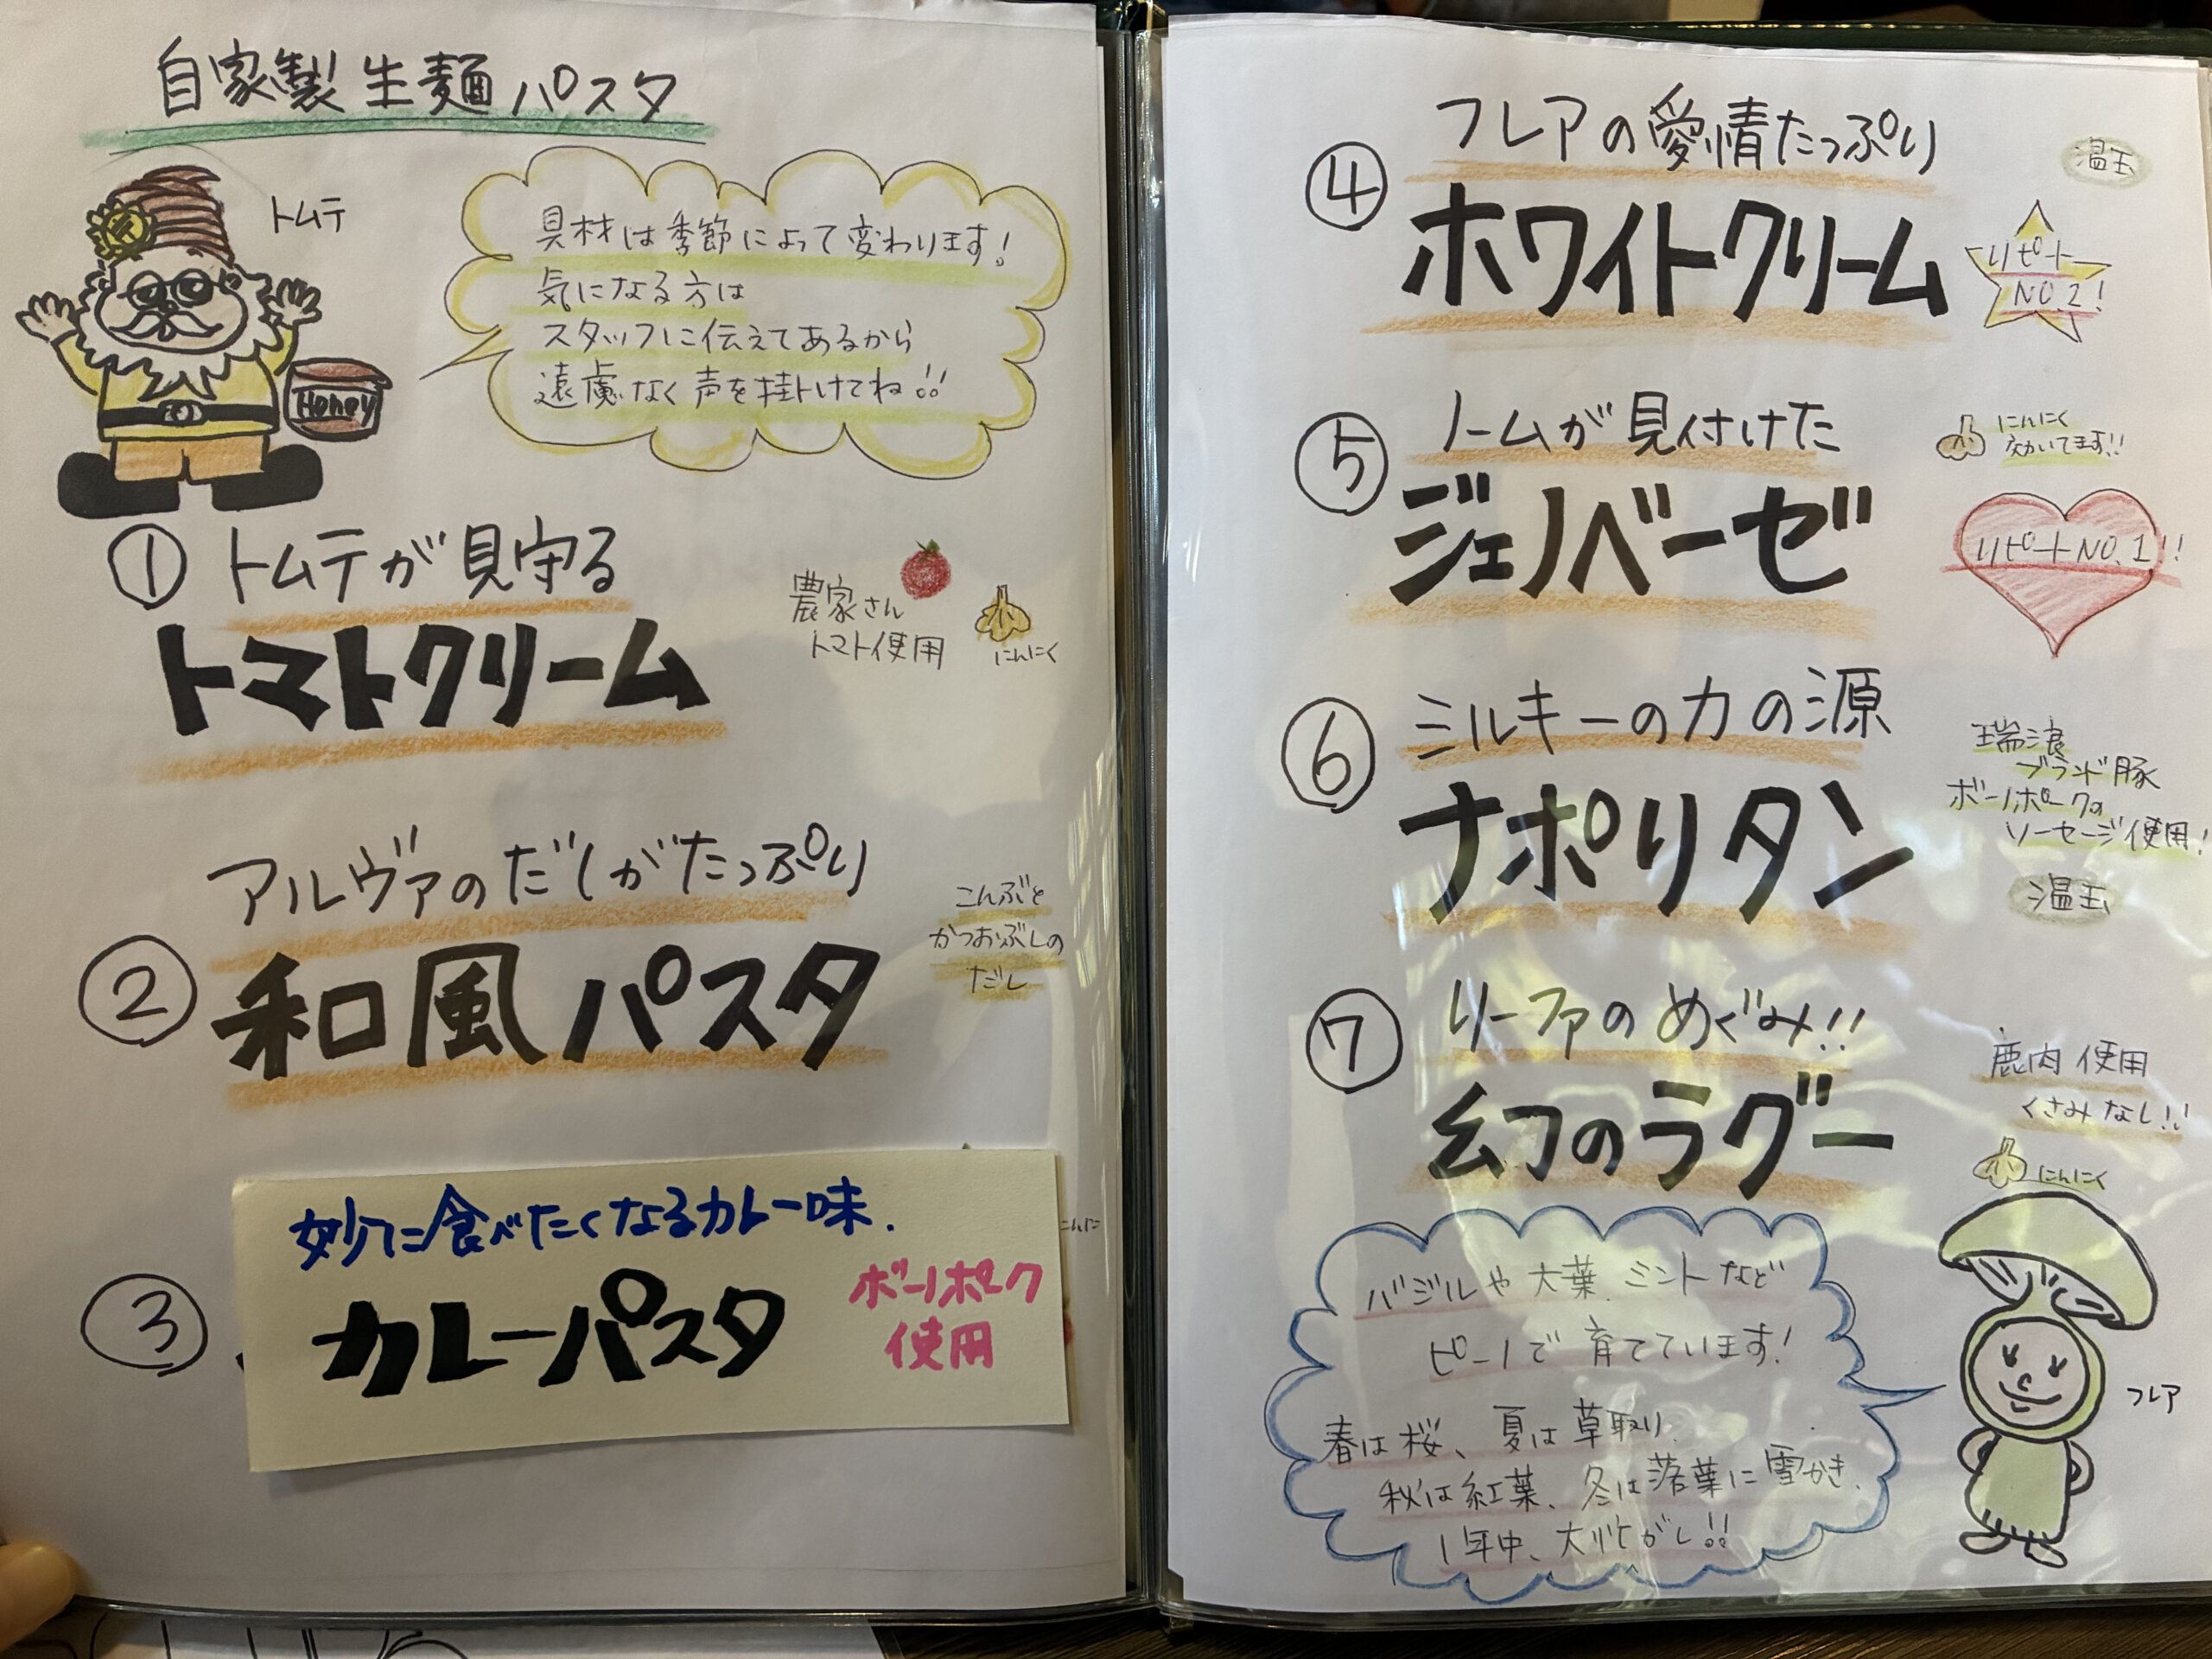 自家製生麺パスタ
トムテ
具材は季節によって変わります!
気になる方は
スタッフに伝えてあるから
遠慮なく声を掛けてね!!
Honey
① トムテが見守る
トマトクリーム
農家さん
トマト使用
にんにく
アルヴァのだしがたっぷり
② 和風パスタ
こんぶと
かつおぶしの
だし
③
妙に食べたくなるカレー味.
カレーパスタ
ボーノポーク
使用
にんに
④ フレアの愛情たっぷり
ホワイトクリーム
温玉
リピート
NO.2!
⑤ ノームが見付けた
ジェノベーゼ
にんにく
効いてます!!
リピートNO.1!!
⑥ ミルキーの力の源
ナポリタン
瑞浪
ブランド豚
ボーノポークの
ソーセージ使用!
温玉
⑦ リーファのめぐみ!!
幻のラグー
鹿肉使用
くさみなし!!
にんにく
バジルや大葉、ミントなど
ピーノで育てています!
春は桜、夏は草取り、
秋は紅葉、冬は落葉に雪かき、
1年中、大忙がし!!
フレア